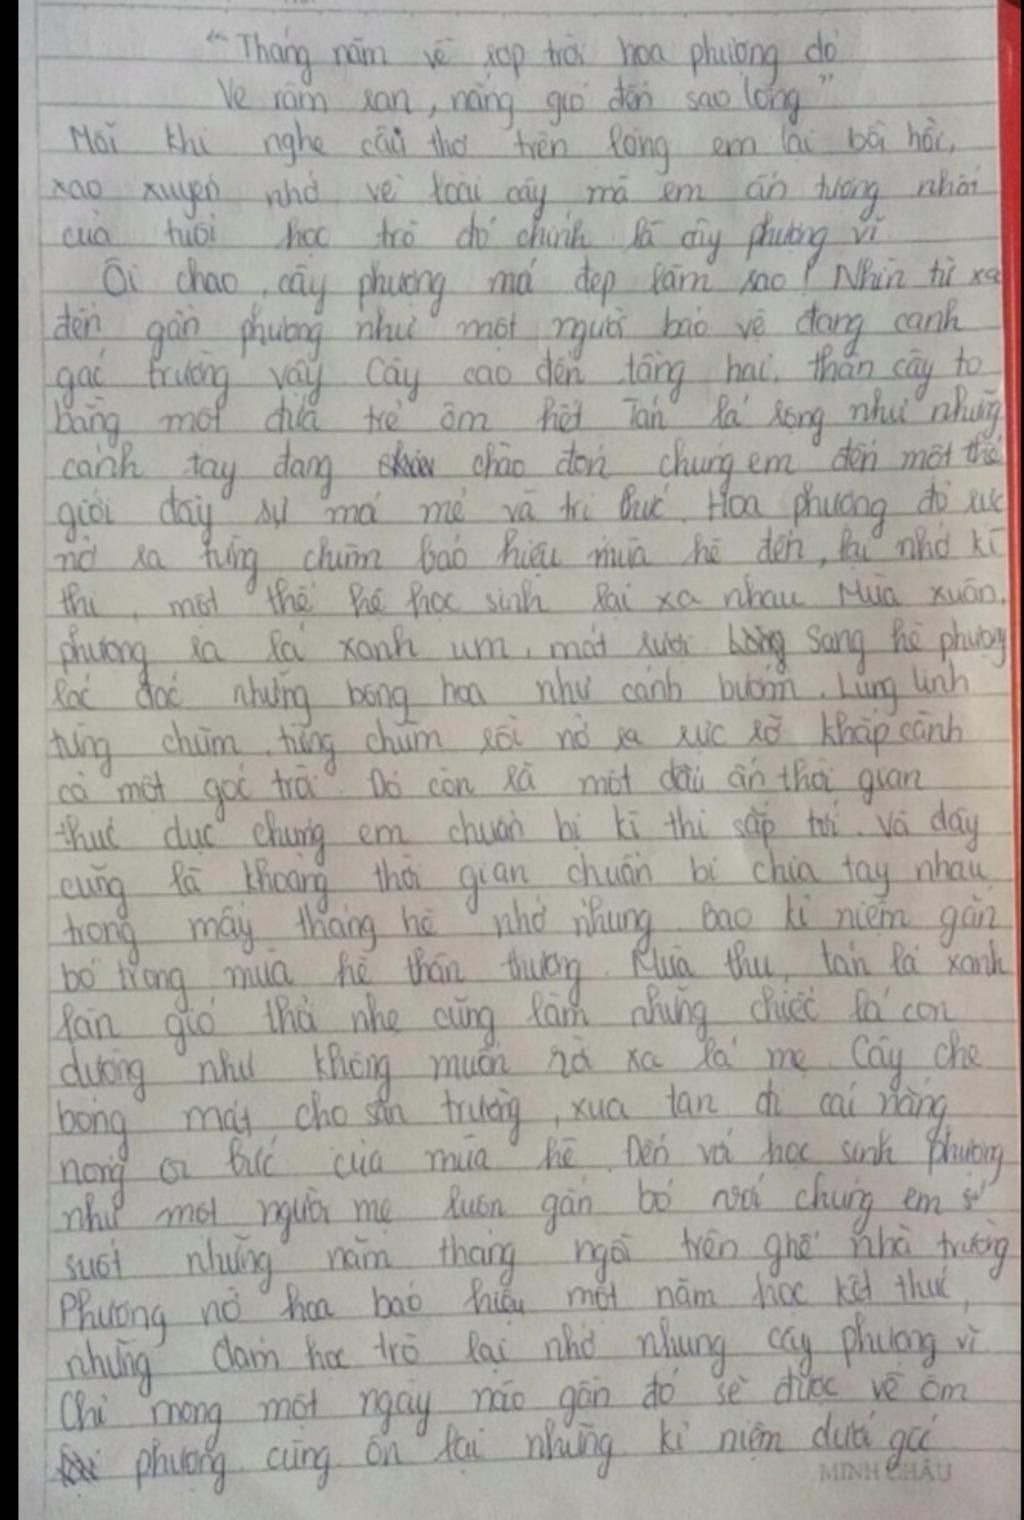 "Tháng năm về rợp trời hoa phượng đỏ
Ve râm ran, nắng gió đến sao lòng"
Mỗi khi nghe câu thơ trên lòng em lại bồi hồi,
xao xuyến nhớ về loài cây mà em ấn tượng nhất
của tuổi học trò đó chính là cây phượng vĩ
Ôi chao, cây phượng mới đẹp làm sao! Nhìn từ xa
đến gần phượng như một người bảo vệ đang canh
gác trường vậy Cây cao đến tầng hai, thân cây to
bằng một đứa trẻ ôm hết Tán lá rộng như những
cánh tay đang chào đón chúng em đến một thế
giới đầy sự mới mẻ và tri thức. Hoa phượng đỏ rực
nở ra từng chùm báo hiệu mùa hè đến, lại nhớ kì
thi, một thế hệ học sinh lại xa nhau Mùa xuân,
phượng ra lá xanh um, mát rượi. Sang hè phượng
lác đác những bông hoa như cánh bướm. Lung linh
từng chùm, từng chùm rồi nở ra rực rỡ khắp cành
cả một góc trời. Đó còn là một dấu ấn thời gian
thúc dục chúng em chuẩn bị kì thi sắp tới. Và đây
cũng là khoảng thời gian chuẩn bị chia tay nhau
trong mấy tháng hè nhớ nhung bao kỉ niệm gắn
bó trong mùa hè thân thương. Mùa thu, tán lá xanh
làn gió thổi nhẹ cũng làm những chiếc lá con
dường như không muốn rời xa lá mẹ. Cây che
bóng mát cho sân trường, xua tan đi cái nắng
nóng oi bức của mùa hè. Đến với học sinh phượng
như một người mẹ luôn gắn bó với chúng em
suốt những năm tháng ngồi trên ghế nhà trường
Phượng nở hoa báo hiệu một năm học kết thúc,
những đám học trò lại nhớ nhung cây phượng vĩ
Chỉ mong một ngày nào gần đó sẽ được về ôm
phượng cùng ôn lại những kỉ niệm dưới gốc
MINH CHÂU